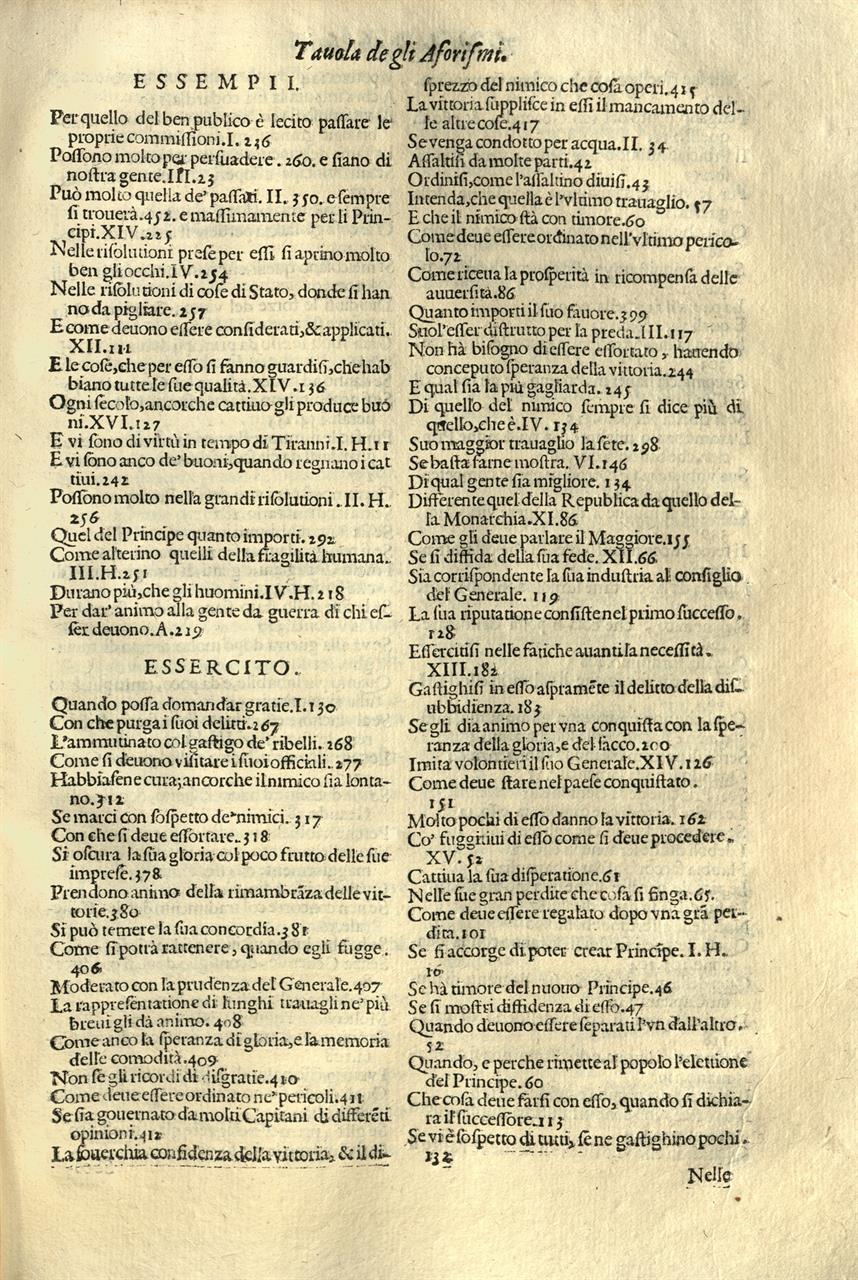 Tauola de gli Aforiſmi.
ESSEMPII.
Per quello del ben publico è lecito paſſare le
proprie commiſſioni.I. 236
Poſſono molto per perſuadere. 260. e ſiano di
noſtra gente.III.23
Può molto quella de' paſſati. II. 350. e ſempre
ſi trouerà.452. e maſſimamente per li Prin-
cipi.XIV.225
Nelle riſolutioni preſe per eſſi ſi aprino molto
ben gli occhi.IV.254
Nelle riſolutioni di coſe di Stato, donde ſi han
no da pigliare. 257
E come deuono eſſere conſiderati,& applicati.
XII.111
E le coſe,che per eſſo ſi fanno guardiſi,che hab
biano tutte le ſue qualità.XIV.136
Ogni ſecolo,ancorche cattiuo gli produce buo
ni.XVI.127
E vi ſono di virtù in tempo di Tiranni.I.H.11
E vi ſono anco de' buoni,quando regnano i cat
tiui.242
Poſſono molto nella grandi riſolutioni. II. H.
256
Quel del Principe quanto importi.292
Come alterino quelli della fragilità humana.
III.H.251
Durano più,che gli huomini.IV.H.218
Per dar' animo alla gente da guerra di chi eſ-
ſer deuono.A.219
ESSERCITO.
Quando poſſa domandar gratie.I.130
Con che purga i ſuoi delitti.267
L'ammutinato col gaſtigo de' ribelli.268
Come ſi deuono viſitare i ſuoi officiali.277
Habbiaſene cura;ancorche il nimico ſia lonta-
no.312
Se marci con ſoſpetto de' nimici. 317
Con che ſi deue eſſortare.318
Si oſcura la ſua gloria col poco frutto delle ſue
impreſe.378
Prendono animo della rimambrāza delle vit-
torie.380
Si può temere la ſua concordia.381
Come ſi potrà rattenere, quando egli fugge.
406
Moderato con la prudenza del Generale.407
La rappreſentatione di lunghi trauagli ne' più
breui gli dà animo. 408
Come anco la ſperanza di gloria,e la memoria
delle comodità.409
Non ſe gli ricordi di diſgratie.410
Come deue eſſere ordinato ne' pericoli.411
Se ſia gouernato da molti Capitani di differēti
opinioni.412
La ſouerchia confidenza della vittoria, & il di-
ſprezzo del nimico che coſa operi.415
La vittoria ſuppliſce in eſſi il mancamento del-
le altre coſe.417
Se venga condotto per acqua.II. 34
Aſſaltiſi da molte parti.42
Ordiniſi,come l'aſſaltino diuiſi.43
Intenda,che quella è l'vltimo trauaglio. 57
E che il nimico ſtà con timore.60
Come deue eſſere ordinato nell'vltimo perico-
lo.72
Come riceua la proſperità in ricompenſa delle
auuerſità.86
Quanto importi il ſuo fauore.399
Suol'eſſer diſtrutto per la preda.III.117
Non hà biſogno di eſſere eſſortato, hauendo
conceputo ſperanza della vittoria.244
E qual ſia la più gagliarda. 245
Di quello del nimico ſempre ſi dice più di
quello,che è.IV. 134
Suo maggior trauaglio la ſete.298
Se baſta farne moſtra. VI.146
Di qual gente ſia migliore. 134
Differente quel della Republica da quello del-
la Monarchia.XI.86
Come gli deue parlare il Maggiore.155
Se ſi diffida della ſua fede. XII.66
Sia corriſpondente la ſua induſtria al conſiglio
del Generale. 119
La ſua riputatione conſiſte nel primo ſucceſſo.
128
Eſſercitiſi nelle fatiche auanti la neceſſità.
XIII.182
Gaſtighiſi in eſſo aſpramēte il delitto della diſ-
ubbidienza.183
Se gli dia animo per vna conquiſta con la ſpe-
ranza della gloria,e del ſacco.200
Imita volontieri il ſuo Generale.XIV.126
Come deue ſtare nel paeſe conquiſtato.
151
Molto pochi di eſſo danno la vittoria. 162
Co' fuggitiui di eſſo come ſi deue procedere.
XV.52
Cattiua la ſua diſperatione.61
Nelle ſue gran perdite che coſa ſi finga.65.
Come deue eſſere regalato dopo vna grā per-
dita.101
Se ſi accorge di poter crear Principe. I. H.
10
Se hà timore del nuouo Principe.46
Se ſi moſtri diffidenza di eſſo.47
Quando deuono eſſere ſeparati l'vn dall'altro.
52
Quando, e perche rimette al popolo l'elettione
del Principe.60
Che coſa deue farſi con eſſo, quando ſi dichia-
ra il ſucceſſore.113
Se vi è ſoſpetto di tutti, ſe ne gaſtighino pochi.
132
Nelle